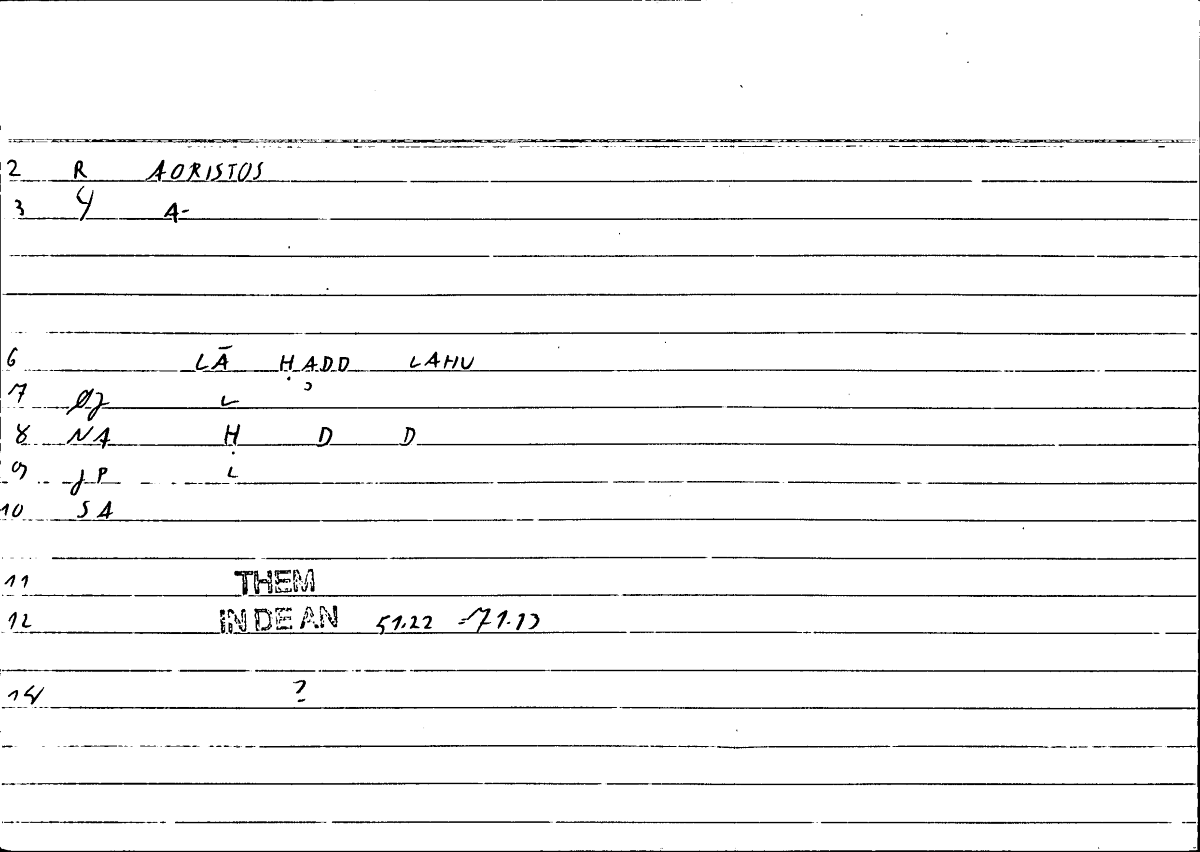 2 R AORISTOS
3 Y A-
6 LĀ ḤADD LAHU
7 L
8 NA Ḥ D D
9 JP L
10 SA
11 THEM
12 IN DE AN 51.22 =71.13
14 ?